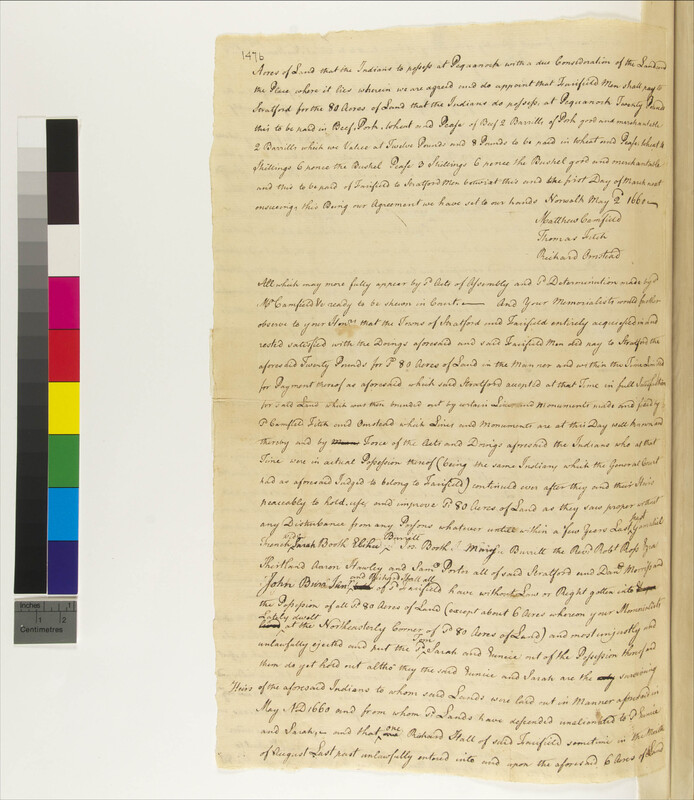 1476
Acres of Land that the Indians to possess at Pequanock with a due Consideration of the Land and
the Place where it lies wherein we are agreed and do appoint that Fairfield Men shall pay to
Stratford for the 80 Acres of Land that the Indians do possess at Pequanock Twenty Pound
this to be paid in Beef, Pork, Wheat and Pease of Beef 2 Barrills of Pork good and merchantable
2 Barrills which we Value at Twelve Pounds and 8 Pounds to be paid in Wheat and Pease Wheat 4
Shillings 6 pence the Bushel Pease 3 Shillings 6 pence the Bushel good and merchantable
and this to be paid of Fairfield to Stratford Men betwixt this and the first Day of March next
ensueing, this Being our Agreement we have set to our hands Norwalk May 2d 1660
Matthew Camfield
Thomas Fitch
Richard Omstead
All which may more fully appear by sd Acts of Assembly and sd Determination made by sd
Mr Camfield &c ready to be shewn in Court. And Your Memorialists would further
observe to your Honrs that the Towns of Stratford and Fairfield entirely acquiesced in and
rested satisfied with the Doings aforesaid and said Fairfield Men did pay to Stratford the
aforesaid Twenty Pounds for sd 80 Acres of Land in the Manner and within the Time Limited
for Payment thereof as aforesaid which said Stratford accepted at that Time in full Satisfaction
for said Land which was then bounded out by certain Lines and Monuments made and fixed by
sd Camfield Fitch and Omstead which Lines and Monuments are at this Day well known and
thereby and by Force of the Acts and Doings aforesaid the Indians who at that
Time were in actual Possession thereof (being the same Indians which the General Court
had as aforesaid Judged to belong to Fairfield) continued ever after they and their Heirs
peaceably to hold, use and improve sd 80 Acres of Land as they saw proper without
any Disturbance from any Persons whatever untill within a few Years Last past Gamaliel
French Sarah Booth Elihu Burritt Jos. Booth Mary Burritt the Revd Robt Ross Ezra
Shertland Aaron Hawley and Saml Porter all of said Stratford and Danl Morriss and
John Burr Junr and Richard Hall all of sd Fairfield have without Law or Right gotten into
the Possession of all sd 80 Acres of Land (except about 6 Acres whereon your Memorialists
Lately dwelt at the Northeasterly Corner of sd 80 Acres of Land) and most unjustly and
unlawfully ejected and put the sd Tom Sarah and Eunice out of the Possession thereof and
them do yet hold out altho they the said Eunice and Sarah are the surviving
Heirs of the aforesaid Indians to whom said Lands were laid out in Manner aforesaid in
May AD 1660 and from whom sd Lands have descended unalienated to sd Eunice
and Sarah, and that one Richard Hall of said Fairfield sometime in the Month
of August Last past unlawfully entered into and upon the aforesaid 6 Acres of Land
Inches 1 2
Centimetres